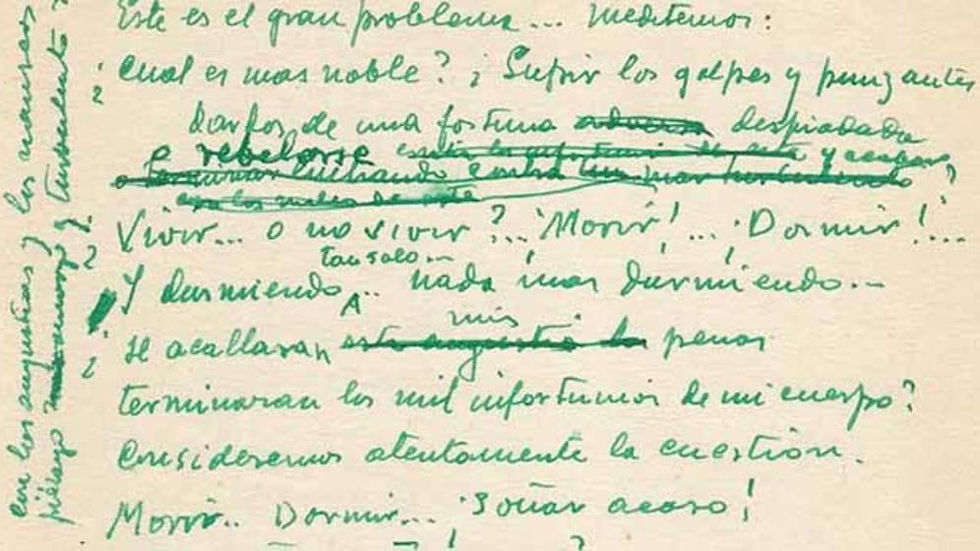 Este es el gran problema... meditemos:
¿Cual es mas noble? ¡Sufrir los golpes y punzantes
dardos de una fortuna adversa despiadada
e rebelarse y acabar
o terminar luchando contra un mar turbulento?
con los males de este
Vivir... o no vivir?... ¡Morir!... ¡Dormir!...
tan solo...
¿Y durmiendo... nada mas durmiendo...
mis
¿se acallaran esta angustia las penas
terminaran los mil infortunios de mi cuerpo?
Consideremos atentamente la cuestión.
Morir.. Dormir... ¡Soñar acaso!
con las angustias y los
piélago y turbulento?